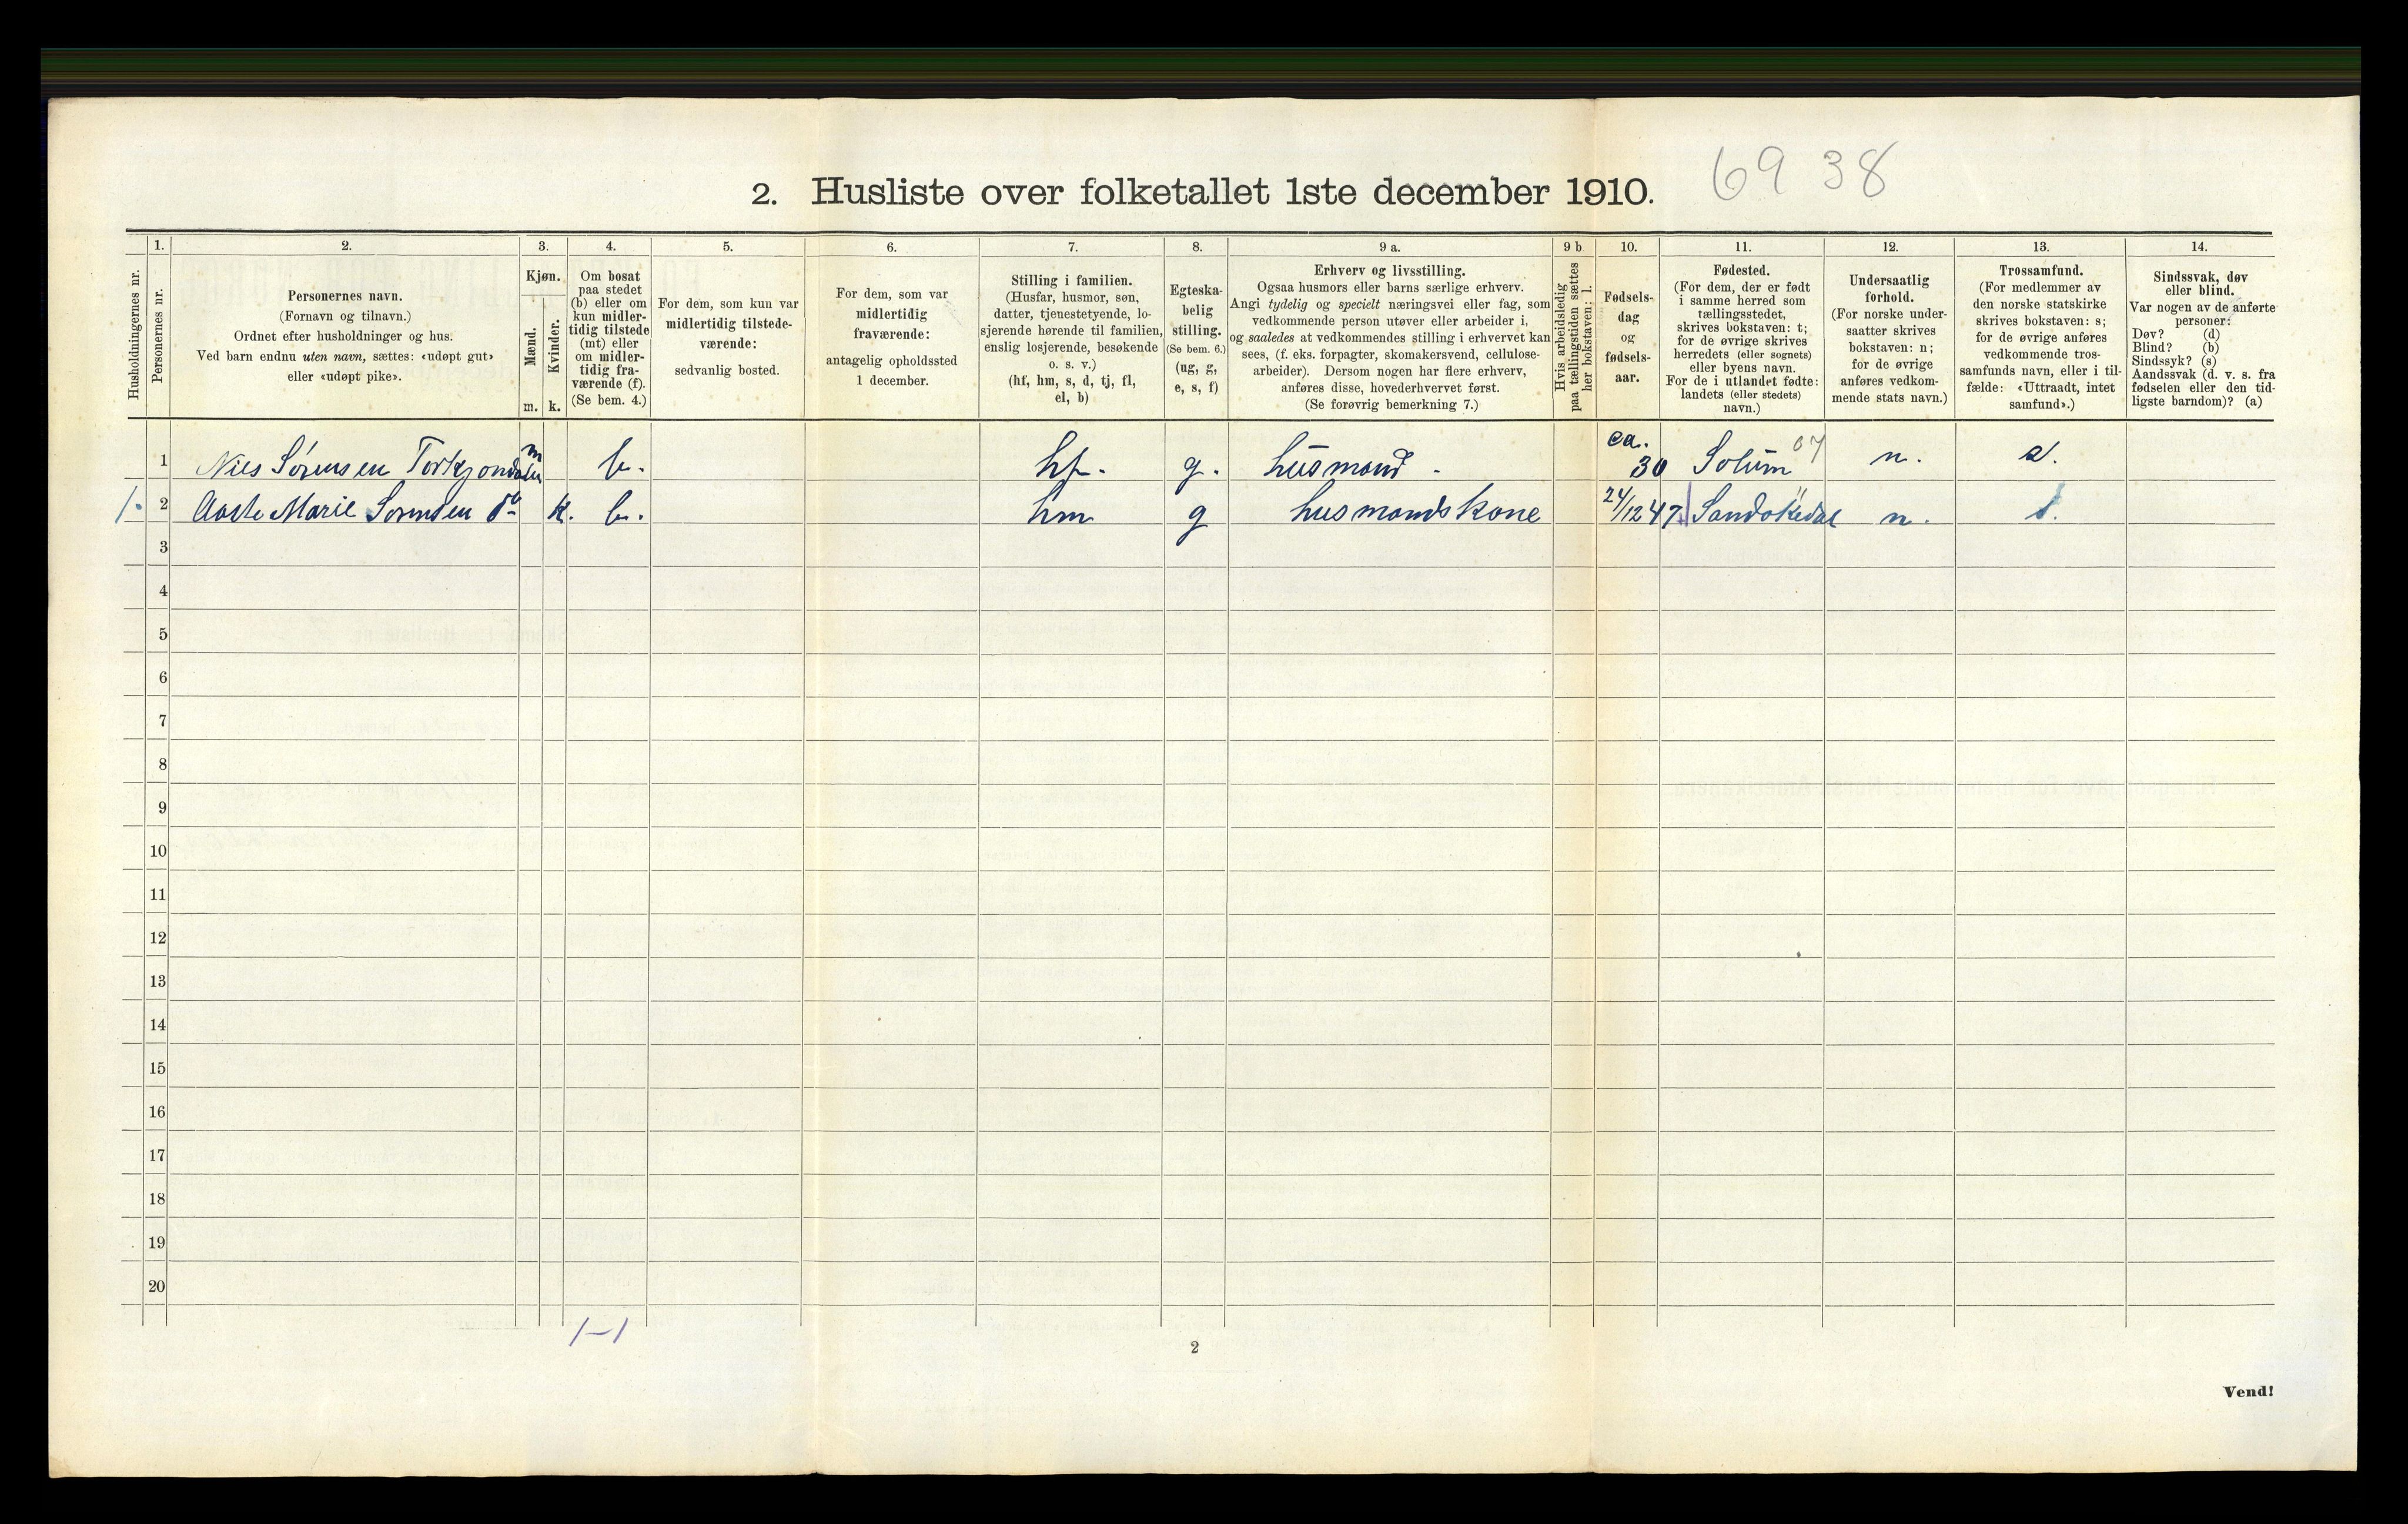 6938
2. Husliste over folketallet 1ste december 1910.
Husholdningernes nr.
1.
Personernes nr.
2.
Personernes navn.
(Fornavn og tilnavn.)
Ordnet efter husholdninger og hus.
Ved barn endnu uten navn, sættes: «udøpt gut»
eller «udøpt pike».
3.
Kjøn.
Mænd.
m.
Kvinder.
k.
4.
Om bosat
paa stedet
(b) eller om
kun midler-
tidig tilstede
(mt) eller
om midler-
tidig fra-
værende (f).
(Se bem. 4.)
5.
For dem, som kun var
midlertidig tilstede-
værende:
sedvanlig bosted.
6.
For dem, som var
midlertidig
fraværende:
antagelig opholdssted
1 december.
7.
Stilling i familien.
(Husfar, husmor, søn,
datter, tjenestetyende, lo-
sjerende hørende til familien,
enslig losjerende, besøkende
o. s. v.)
(hf, hm, s, d, tj, fl,
el, b)
8.
Egteska-
belig
stilling.
(Se bem. 6.)
(ug, g,
e, s, f)
9 a.
Erhverv og livsstilling.
Ogsaa husmors eller barns særlige erhverv.
Angi tydelig og specielt næringsvei eller fag, som
vedkommende person utøver eller arbeider i,
og saaledes at vedkommendes stilling i erhvervet kan
sees, (f. eks. forpagter, skomakersvend, cellulose-
arbeider). Dersom nogen har flere erhverv,
anføres disse, hovederhvervet først.
(Se forøvrig bemerkning 7.)
9 b
Hvis arbeidsledig
paa tællingstiden sættes
her bokstaven: l.
10.
Fødsels-
dag
og
fødsels-
aar.
11.
Fødested.
(For dem, der er født
i samme herred som
tællingsstedet,
skrives bokstaven: t;
for de øvrige skrives
herredets (eller sognets)
eller byens navn.
For de i utlandet fødte:
landets (eller stedets)
navn.)
12.
Undersaatlig
forhold.
(For norske under-
saatter skrives
bokstaven: n;
for de øvrige
anføres vedkom-
mende stats navn.)
13.
Trossamfund.
(For medlemmer av
den norske statskirke
skrives bokstaven: s;
for de øvrige anføres
vedkommende tros-
samfunds navn, eller i til-
fælde: «Uttraadt, intet
samfund».)
14.
Sindssvak, døv
eller blind.
Var nogen av de anførte
personer:
Døv? (d)
Blind? (b)
Sindssyk? (s)
Aandssvak (d. v. s. fra
fødselen eller den tid-
ligste barndom)? (a)
1 Nils Sørensen Torkjøndalen m b. hf. g. husmand. ca. 30 Solum 07 n. s.
1. 2 Aaste Marie Sørensen do k. b. hm g husmandskone 24/12 47 Sandøkedal n. s.
3
4
5
6
7
8
9
10
11
12
13
14
15
16
17
18
19
20
1-1
2
Vend!